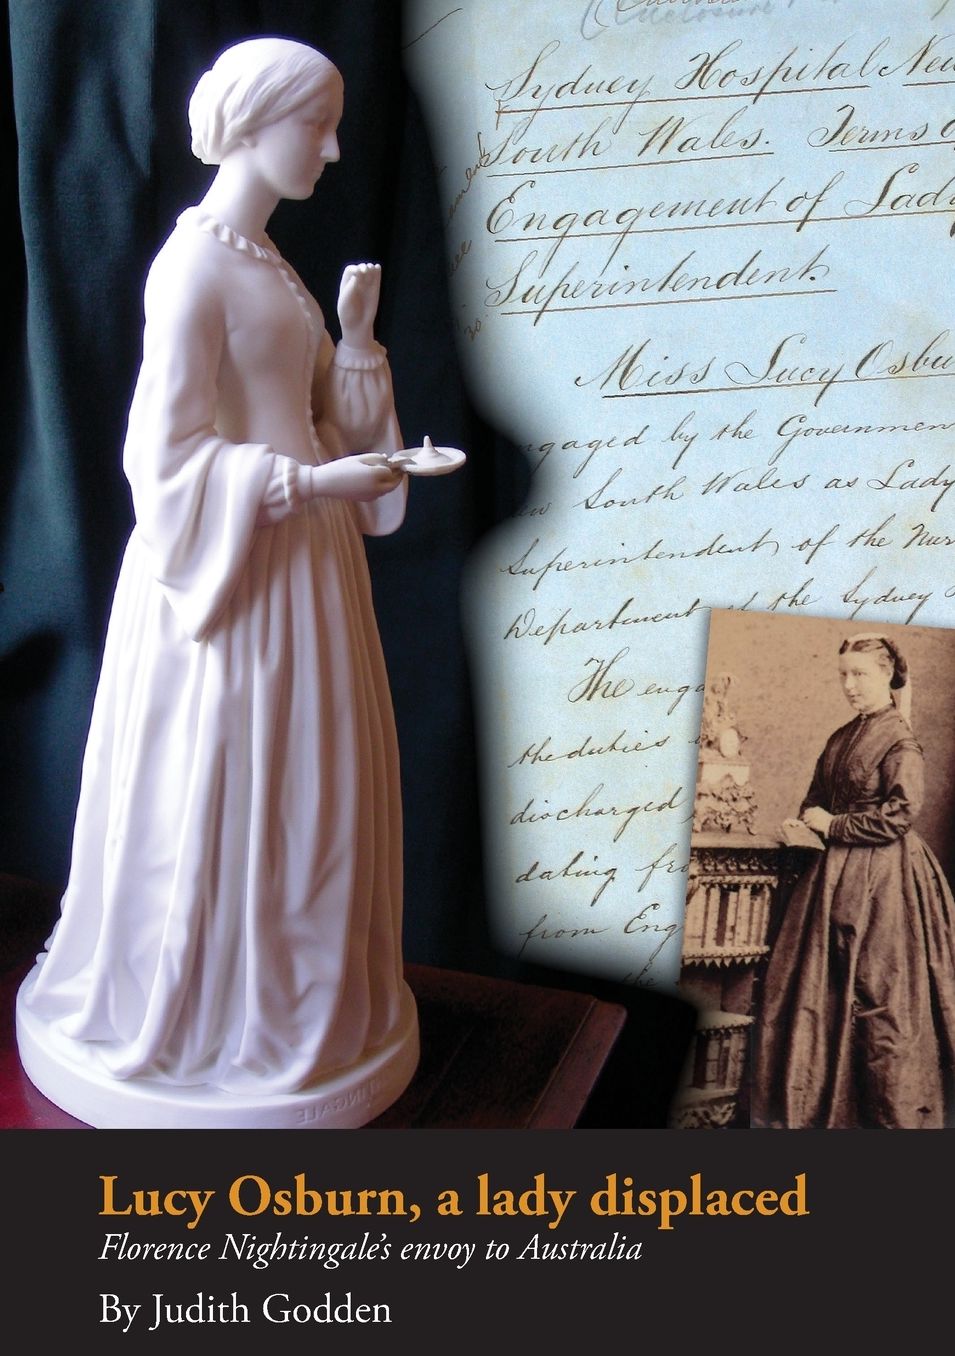 Sydney Hospital New
South Wales. Terms o
Engagement of Lady
Superintendent.
Miss Lucy Osbu
ngaged by the Governmen
ew South Wales as Lady
Superintendent of the Nur
Department of the Sydney
The enga
the duties
discharged
dating fro
from Eng
the
INGALE
Lucy Osburn, a lady displaced
Florence Nightingale's envoy to Australia
By Judith Godden